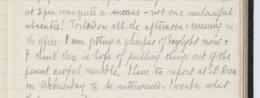 at 2pm was quite a success - not one unlawful
absentee! Toiled on all the afternoon & evening in
the office, I am getting a glimpse of daylight now &
I think there is hope of pulling things out of the
present awful muddle. I have to report at S.E. Area
on Wednesday to be interviewed. I wonder what